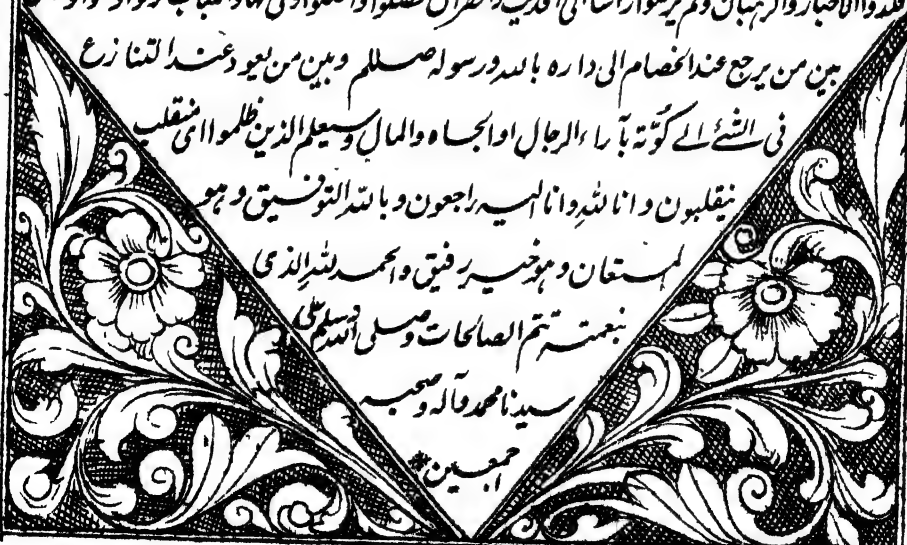 الاحبار والرهبان ولم يرفعوا راسا الى
بين من يرجع عند الخصام الى داره بالله ورسوله صللم وبين من يعود عند التنازع
فى الشئ الے كوّته بآراء الرجال او الجاه والمال وسيعلم الذين ظلموا اى منقلب
ينقلبون وانا لله وانا اليه راجعون وبالله التوفيق وهو
المستعان وهو خير رفيق والحمد لله الذى
بنعمته تتم الصالحات وصلى الله وسلم على
سيدنا محمد وآله وصحبه
اجمعين